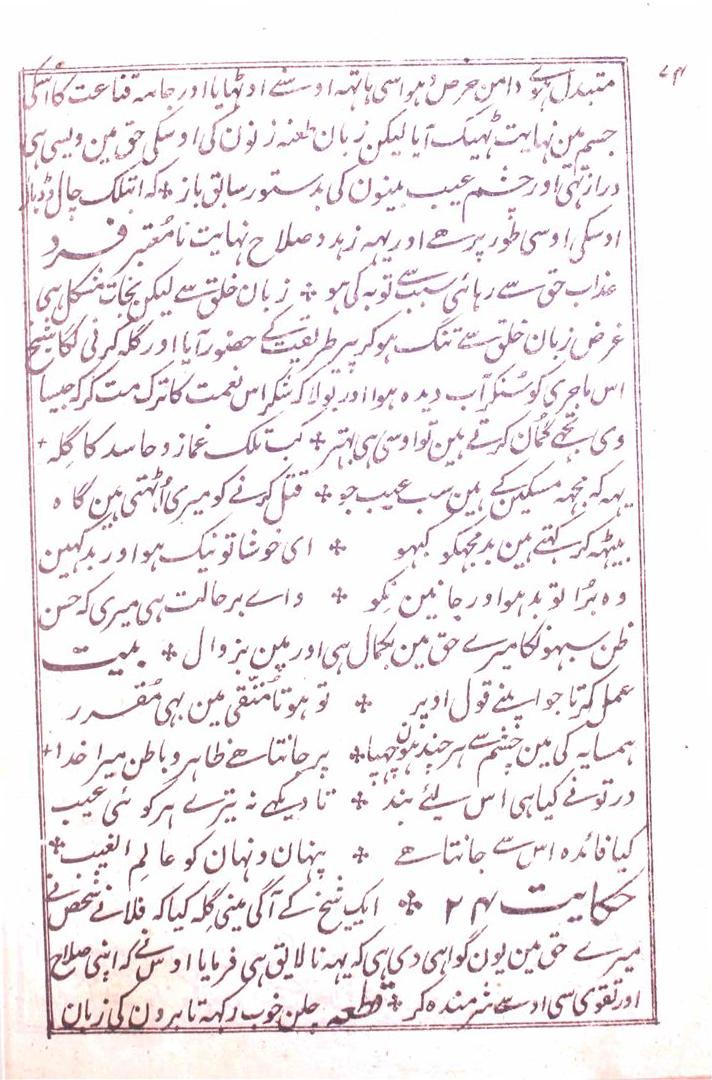 ۷۴
متبدل ہوئے دامن حرص و ہوا سی ہاتہہ اوسنے اوٹہایا اور جامہ قناعت کا اُسکی
جسم مین نہایت ٹہیک آیا لیکن زبان طعنہ زنون کی اوسکی حق مین ویسی ہی
دراز تہی اور چشم عیب بینون کی بدستور سابق باز ✤ کہ ابتلک چال وڈہال
اوسکی اوسی طور پر ہے اور یہہ زہد و صلاح نہایت نامُعتبر فرد
عذاب حق سے رہائی سبب سے توبہ کی ہو ✤ زبان خلق سے لیکن نجات مشکل ہی
غرض زبان خلق سے تنگ ہوکر پیر طریقت کے حضور آیا اور گلہ کرنی لگا شیخ
اس ماجری کو سُنکر آب دیدہ ہوا اور بولا کہ شکر اس نعمت کا ترک مت کر کہ جیسا
وی تجہے گمان کرتے ہین تو اوسی ہی بہتر ✤ کب تلک غماز و حاسد کا گلہ +
یہہ کہ مجہہ مسکین کے ہین سب عیب جو ✤ قتل کرنے کو میری اُٹہتی ہین گاہ
بیٹہہ کر کہتے ہین بد مجہکو کبہو ✤ ای خوشا تو نیک ہو اور بد کہین
وہ بُرا تو بد ہو اور جانین نکو ✤ واے بر حالت ہی میری کہ حسن
ظن سبہونکا میرے حق مین بکمال ہی اور مین بزوال ✤ بیت
عمل کرتا جو اپنے قول اوپر ✤ تو ہوتا مُتّقی مین بہی مُقرر
ہمسایہ کی مین چشم سے ہر چند ہون چہپا ✤ پر جانتا ہے ظاہر و باطن میرا خدا +
در تونے کیا ہی اس لیئے بند ✤ تا دیکہے نہ تیرے ہر کوئی عیب
کیا فائدہ اس سے جانتا ہے ✤ پنہان و نہان کو عالم الغیب ✤
حکایت ۲۴ ✤ ایک شیخ کے آگی مینی گلہ کیا کہ فلانے شخص نے
میرے حق مین یون گواہی دی ہی کہ یہہ نالایق ہی فرمایا اوسنے کہ اپنی صلاح
اور تقوی سی اوسے شرمندہ کر ✤ قطعہ چلن خوب رکہہ تا برون کی زبان